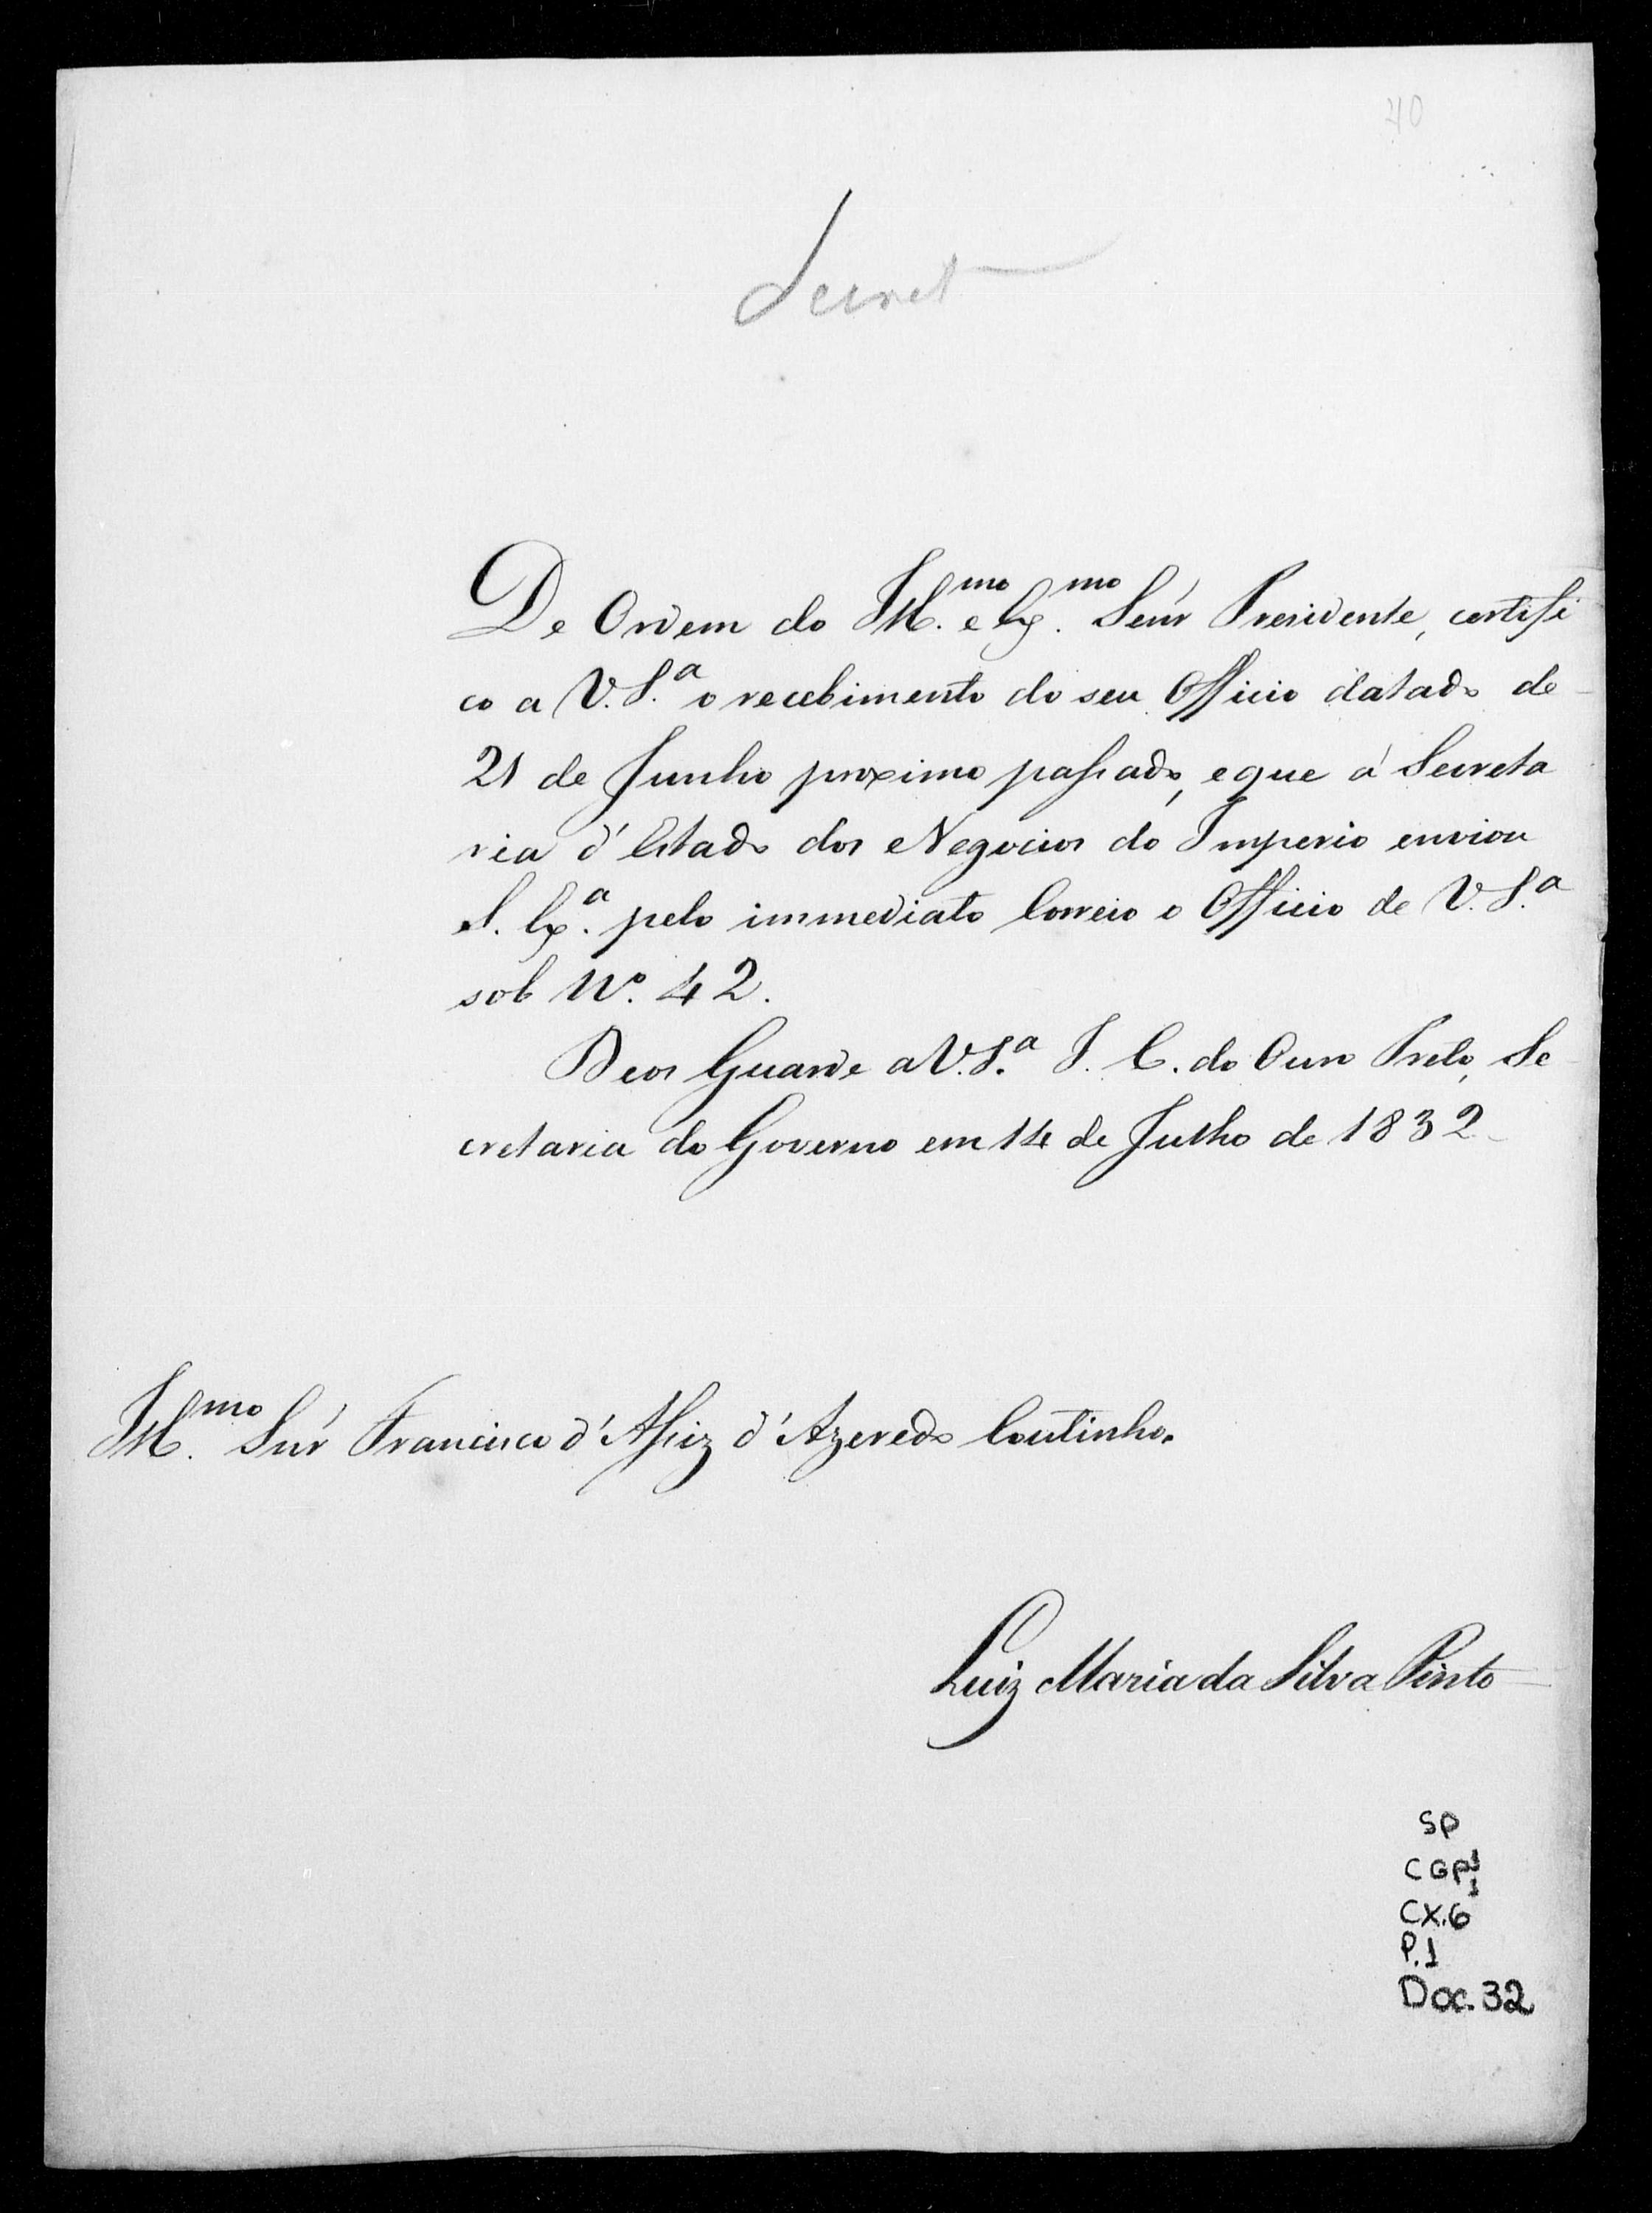 40
Secret
De Ordem do Ill.mo e Ex.mo Senr Presidente, certifi
co a V. S.a o recebimento do seu Officio datado de
21 de Junho proximo passado, e que á Secreta
ria d'Estado dos Negocios do Imperio enviou
S. Ex.a pelo immediato Correio o Officio de V. S.a
sob Nº. 42.
Deos Guarde a V. S.a I. C. do Ouro Preto, Se
cretaria do Governo em 14 de Julho de 1832
Ill.mo Snr Francisco d'Assiz d'Azeredo Coutinho.
Luiz Maria da Silva Pinto
SP
CGP¹
1
CX.6
P.1
Doc.32